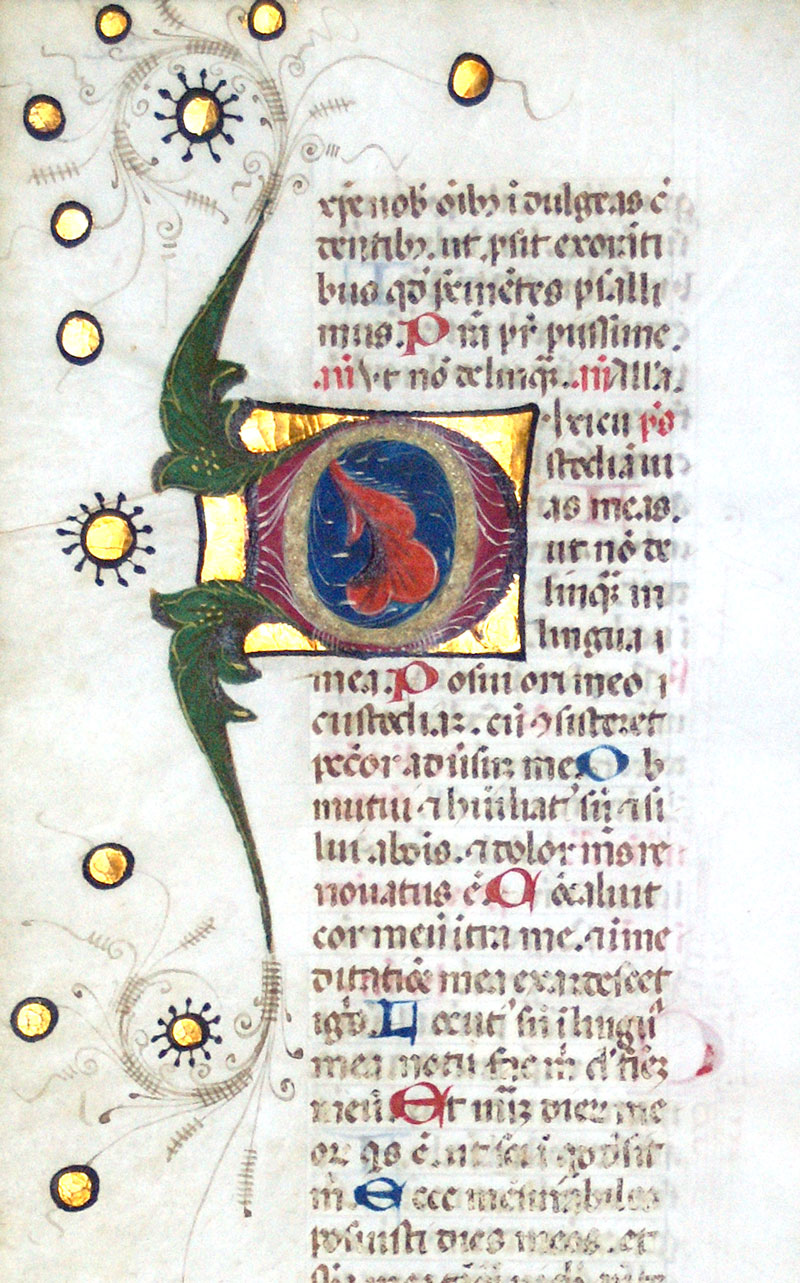 xp̄e nob̄ oīb; īdulgeas c̄
dentib;. ut ꝓsit exorāti
bus qd̄ ꝑeim̄etes psalli
mus. P m̄ pr̄ pijssime.
Vt nō delinqr̄. Alla.
D Ixi cu p̄s
stodiā ui
as meas.
ut nō de
linqr̄ in
lingua
mea. P osui ori meo
custodiaz. cū ꝯsisteret
pec̄or aduūsuz me. O b
mutui ⁊ hūiliat' sū ⁊ si
lui abōis. ⁊ dolor m̄s re
nouatus ē. C ōcaluit
cor meū itra me. ⁊ ime
ditatiōe mea exardescet
igīs. L ocut' sū ilingua
mea notū fac m̄ d̄ fiēz
meū. Et nūz dierz me
orz qs ē. ut sciā qd desit
m̄. E cce mēsurabiles
posuisti dies meos. et